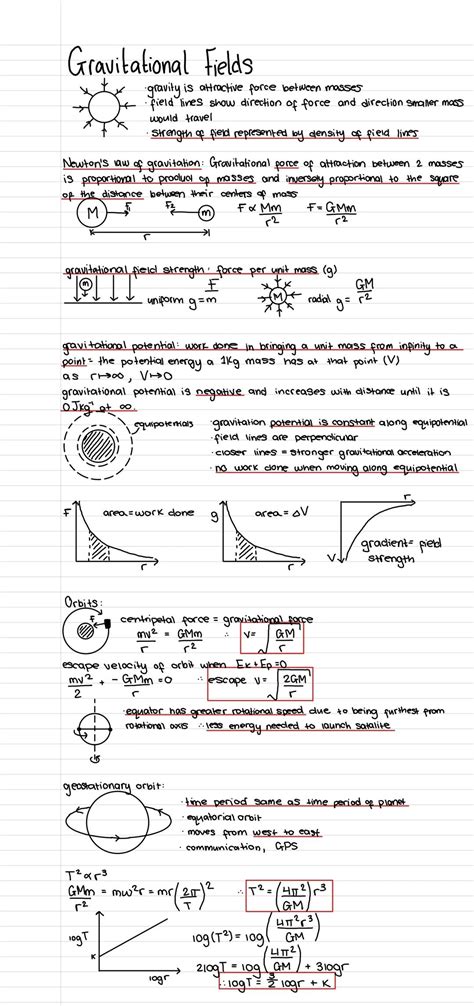 Gravitational Fields
· gravity is attractive force between masses
· field lines show direction of force and direction smaller mass
would travel
· strength of field represented by density of field lines
Newton's law of gravitation: Gravitational force of attraction between 2 masses
is proportional to product of masses and inversely proportional to the square
of the distance between their centers of mass
M F₁ F₂ m F ∝ Mm/r² F = GMm/r²
r
gravitational field strength: force per unit mass (g)
m uniform g = F/m M radial g = GM/r²
gravitational potential: work done in bringing a unit mass from infinity to a
point = the potential energy a 1Kg mass has at that point (V)
as r→∞, V→0
gravitational potential is negative and increases with distance until it is
0 JKg⁻¹ at ∞.
equipotentials
· gravitation potential is constant along equipotential
· field lines are perpendicular
· closer lines = stronger gravitational acceleration
· no work done when moving along equipotential
F area = work done r
g area = ΔV r
r V gradient = field
strength
Orbits:
F centripetal force = gravitational force
mv²/r = GMm/r² ∴ v = √(GM/r)
escape velocity of orbit when Ek + Ep = 0
mv²/2 + -GMm/r = 0 ∴ escape v = √(2GM/r)
· equator has greater rotational speed due to being furthest from
rotational axis ∴ less energy needed to launch satalite
geostationary orbit:
· time period same as time period of planet
· equatorial orbit
· moves from west to east
· communication, GPS
T² ∝ r³
GMm/r² = mω²r = mr(2π/T)² ∴ T² = (4π²/GM) r³
logT K logr
log(T²) = log(4π²r³/GM)
2logT = log(4π²/GM) + 3logr
∴ logT = 3/2 logr + K